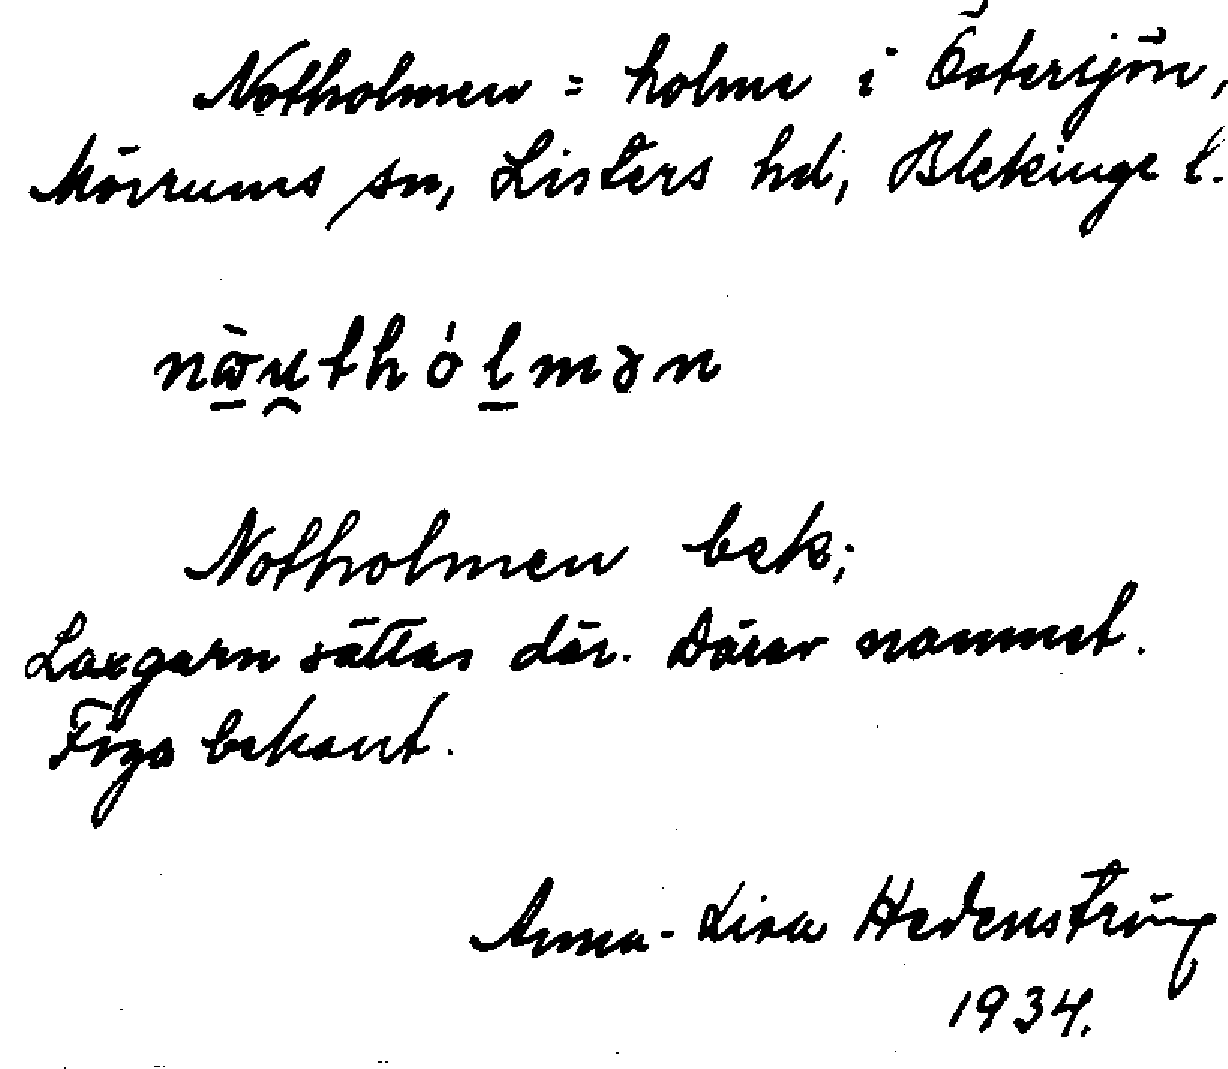 Notholmen = holme i Östersjön,
Mörrums sn, Listers hd, Blekinge l.
nɷ̀u̯thólmən
Notholmen bek;
Laxgarn sättas där. Därav namnet.
Föga bekant.
Anna-Lisa Hedenström
1934.